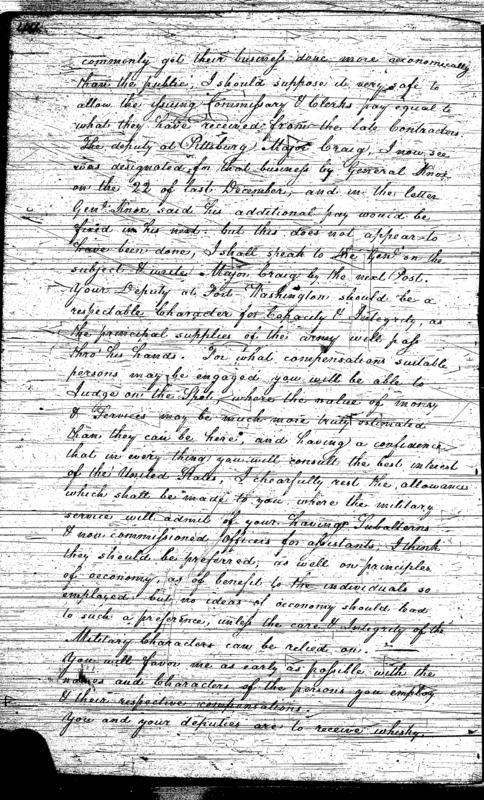 commonly get their business done more œconomically
than the public, I should suppose it very safe to
allow the issuing Commissary & Clerks pay equal to
what they have received from the late Contractors.
The deputy at Pittsburg, Major Craig, I now see
was designated for that business by General Knox
on the 22 of last December, and in the letter
Genl. Knox said his additional pay would be
fixed in his next: but this does not appear to
have been done, I shall speak to the Genl. on the
subject & write Major Craig by the next Post.
Your Deputy at Fort Washington should be a
respectable Character for Capacity & Integrity, as
the principal supplies of the army will pass
thro' his hands. For what compensations suitable
persons may be engaged you will be able to
Judge on the Spot, where the value of money
& Services may be much more truly estimated
than they can be here, and having a confidence
that in every thing you will consult the best interest
of the United States, I chearfully rest the allowances
which shall be made to you where the military
service will admit of your having Subalterns
& non commissioned Officers for assistants, I think
they should be preferred, as well on principles
of œconomy, as of benefit to the individuals so
employed but no ideas of œconomy should lead
to such a preference, unless the care & Integrity of the
Military Characters can be relied on.
You will favor me as early as possible with the
names and Characters of the persons you employ
& their respective compensations.
You and your deputies are to receive whisky,